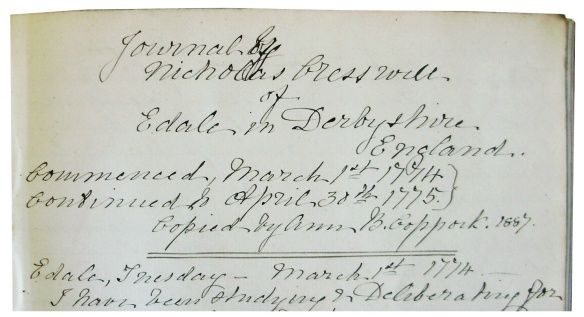 Journal of
Nicholas Cresswell
of
Edale in Derbyshire
England.
Commenced, March 1st 1774
Continued to April 30th 1775.
Copied by Ann B. Coppock. 1887.
Edale, Tuesday – March 1st 1774
I have been studying & Deliberating for